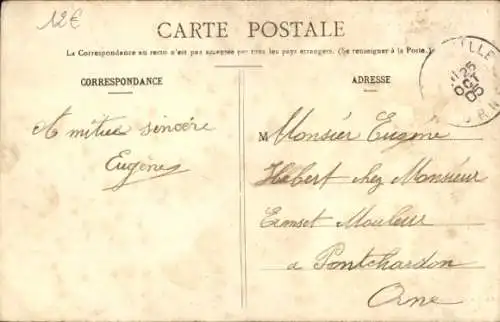 12€
CARTE POSTALE
La Correspondance au recto n'est pas acceptée par tous les pays étrangers. (Se renseigner à la Poste.)
CORRESPONDANCE
ADRESSE
A mitié sincère
Eugène
M Monsiér Eugéne
Hébert chez Monsieur
Ermset Mouleur
a Pontchardon
Orne
VILLE
25